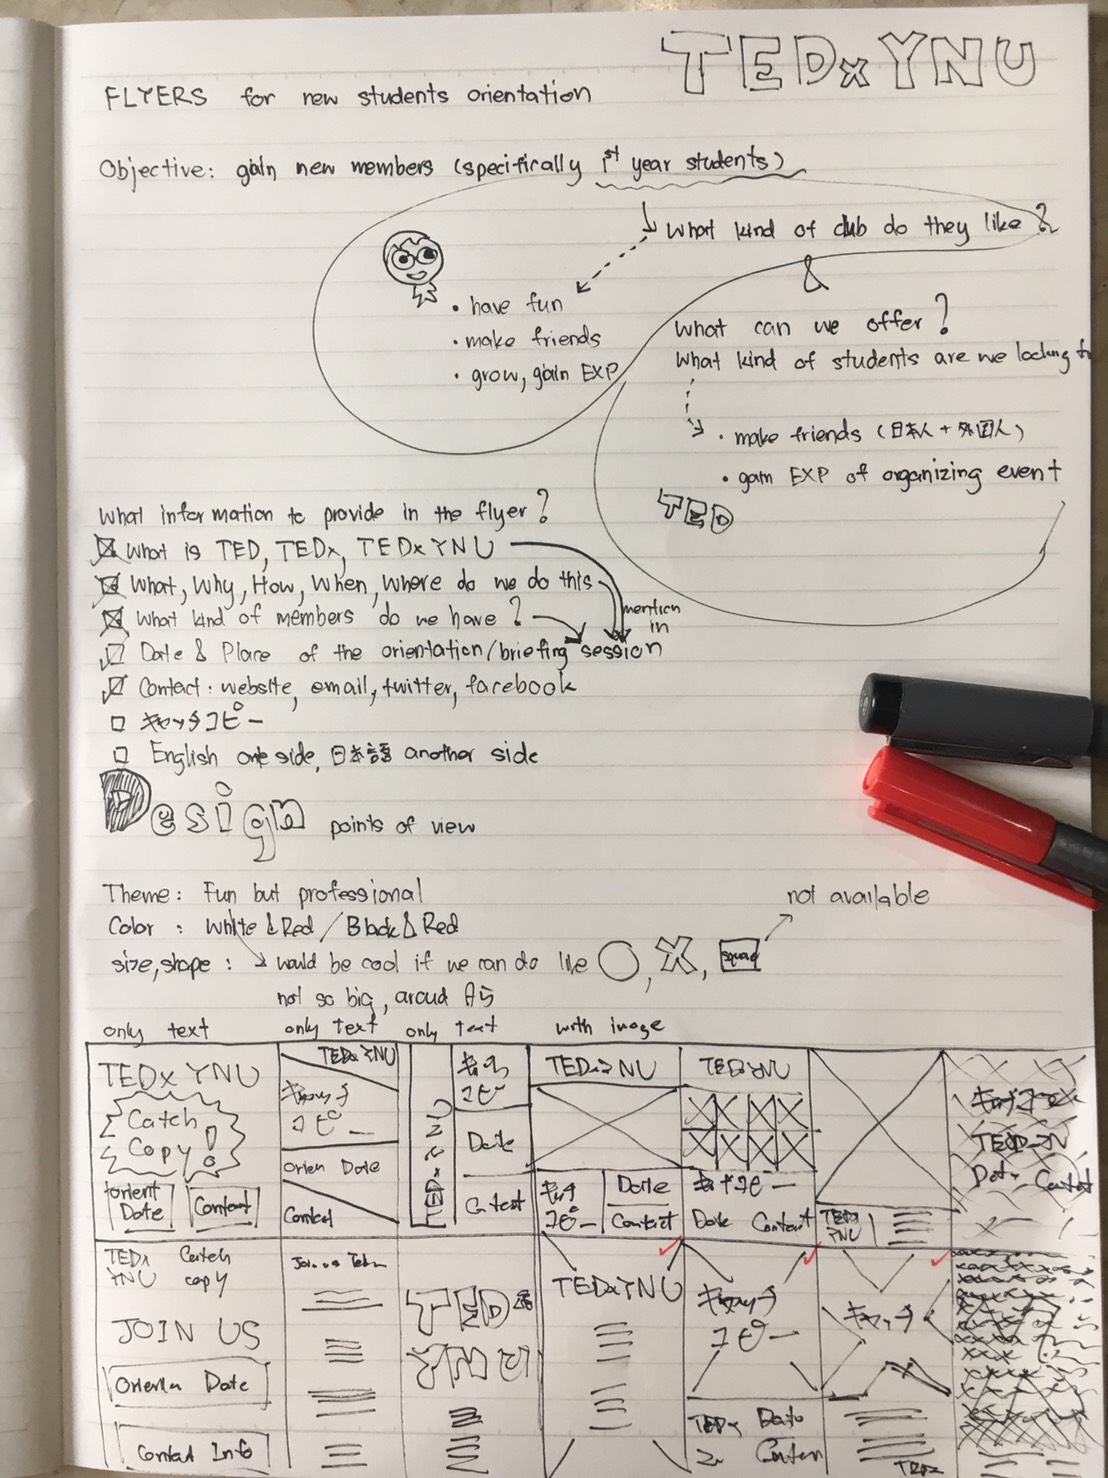 TEDxYNU
FLYERS for new students orientation
Objective: gain new members (specifically 1st year students)
What kind of club do they like?
&
• have fun
• make friends
• grow, gain EXP
What can we offer?
What kind of students are we looking
• make friends (日本人 + 外国人)
• gain EXP of organizing event
TED
What information to provide in the flyer?
What is TED, TEDx, TEDxYNU
What, Why, How, When, Where do we do this
What kind of members do we have?
mention in
Date & Place of the orientation/briefing session
Contact: website, email, twitter, facebook
キャッチコピー
English one side, 日本語 another side
Design points of view
Theme: Fun but professional
Color: White & Red / Black & Red
not available
size, shape: would be cool if we can do like
square
not so big, aroud A5
only text
only text
only text
with image
TEDxYNU
Catch Copy!
Orient Date
Contact
TEDxYNU
キャッチコピー
Orien Date
Contact
TEDxYNU
キャッチコピー
Date
Contact
TEDxYNU
キャッチコピー
Date
Contact
TEDxYNU
キャッチコピー
Date Contact
TEDx YNU
キャッチコピー
Contact
TEDx YNU
Catch copy
JOIN US
Orien Date
Contact Info
Join us
TEDx YNU
TEDxYNU
キャッチコピー
TEDx Date
キャッチ
TEDx